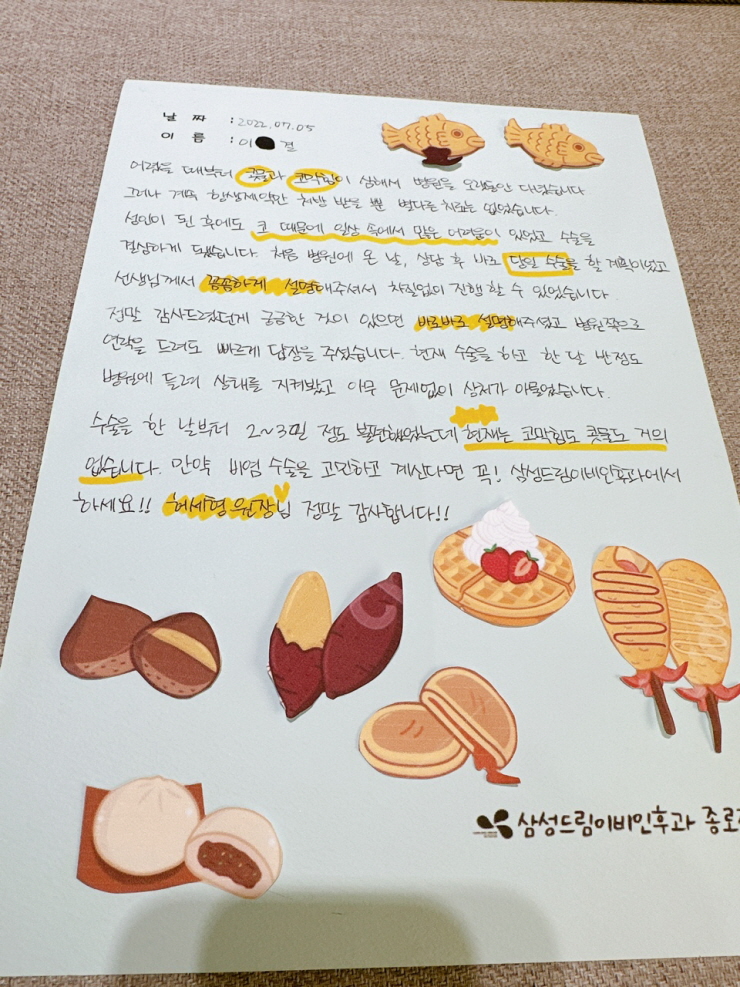 날 짜 : 2022.07.05
이 름 : 이 결
어렸을 때부터 콧물과 코막힘이 심해서 병원을 오랫동안 다녔습니다
그러나 계속 항생제약만 처방 받을 뿐 별다른 치료는 없었습니다.
성인이 된 후에도 코 때문에 일상 속에서 많은 어려움이 있었고 수술을
결심하게 됐습니다. 처음 병원에 온 날, 상담 후 바로 당일 수술을 할 계획이었고
선생님께서 꼼꼼하게 설명해주셔서 차질없이 진행 할 수 있었습니다.
정말 감사드렸던게 궁금한 것이 있으면 바로바로 설명해주셨고 병원쪽으로
연락을 드려도 빠르게 답장을 주셨습니다. 현재 수술을 하고 한 달 반정도
병원에 들려 상태를 지켜봤고 아무 문제없이 상처가 아물었습니다.
수술을 한 날부터 2~3일 정도 불편했었는데 현재는 코막힘도 콧물도 거의
없습니다. 만약 비염 수술을 고민하고 계신다면 꼭! 삼성드림이비인후과에서
하세요!! 원장님 정말 감사합니다!!
삼성드림이비인후과 종로